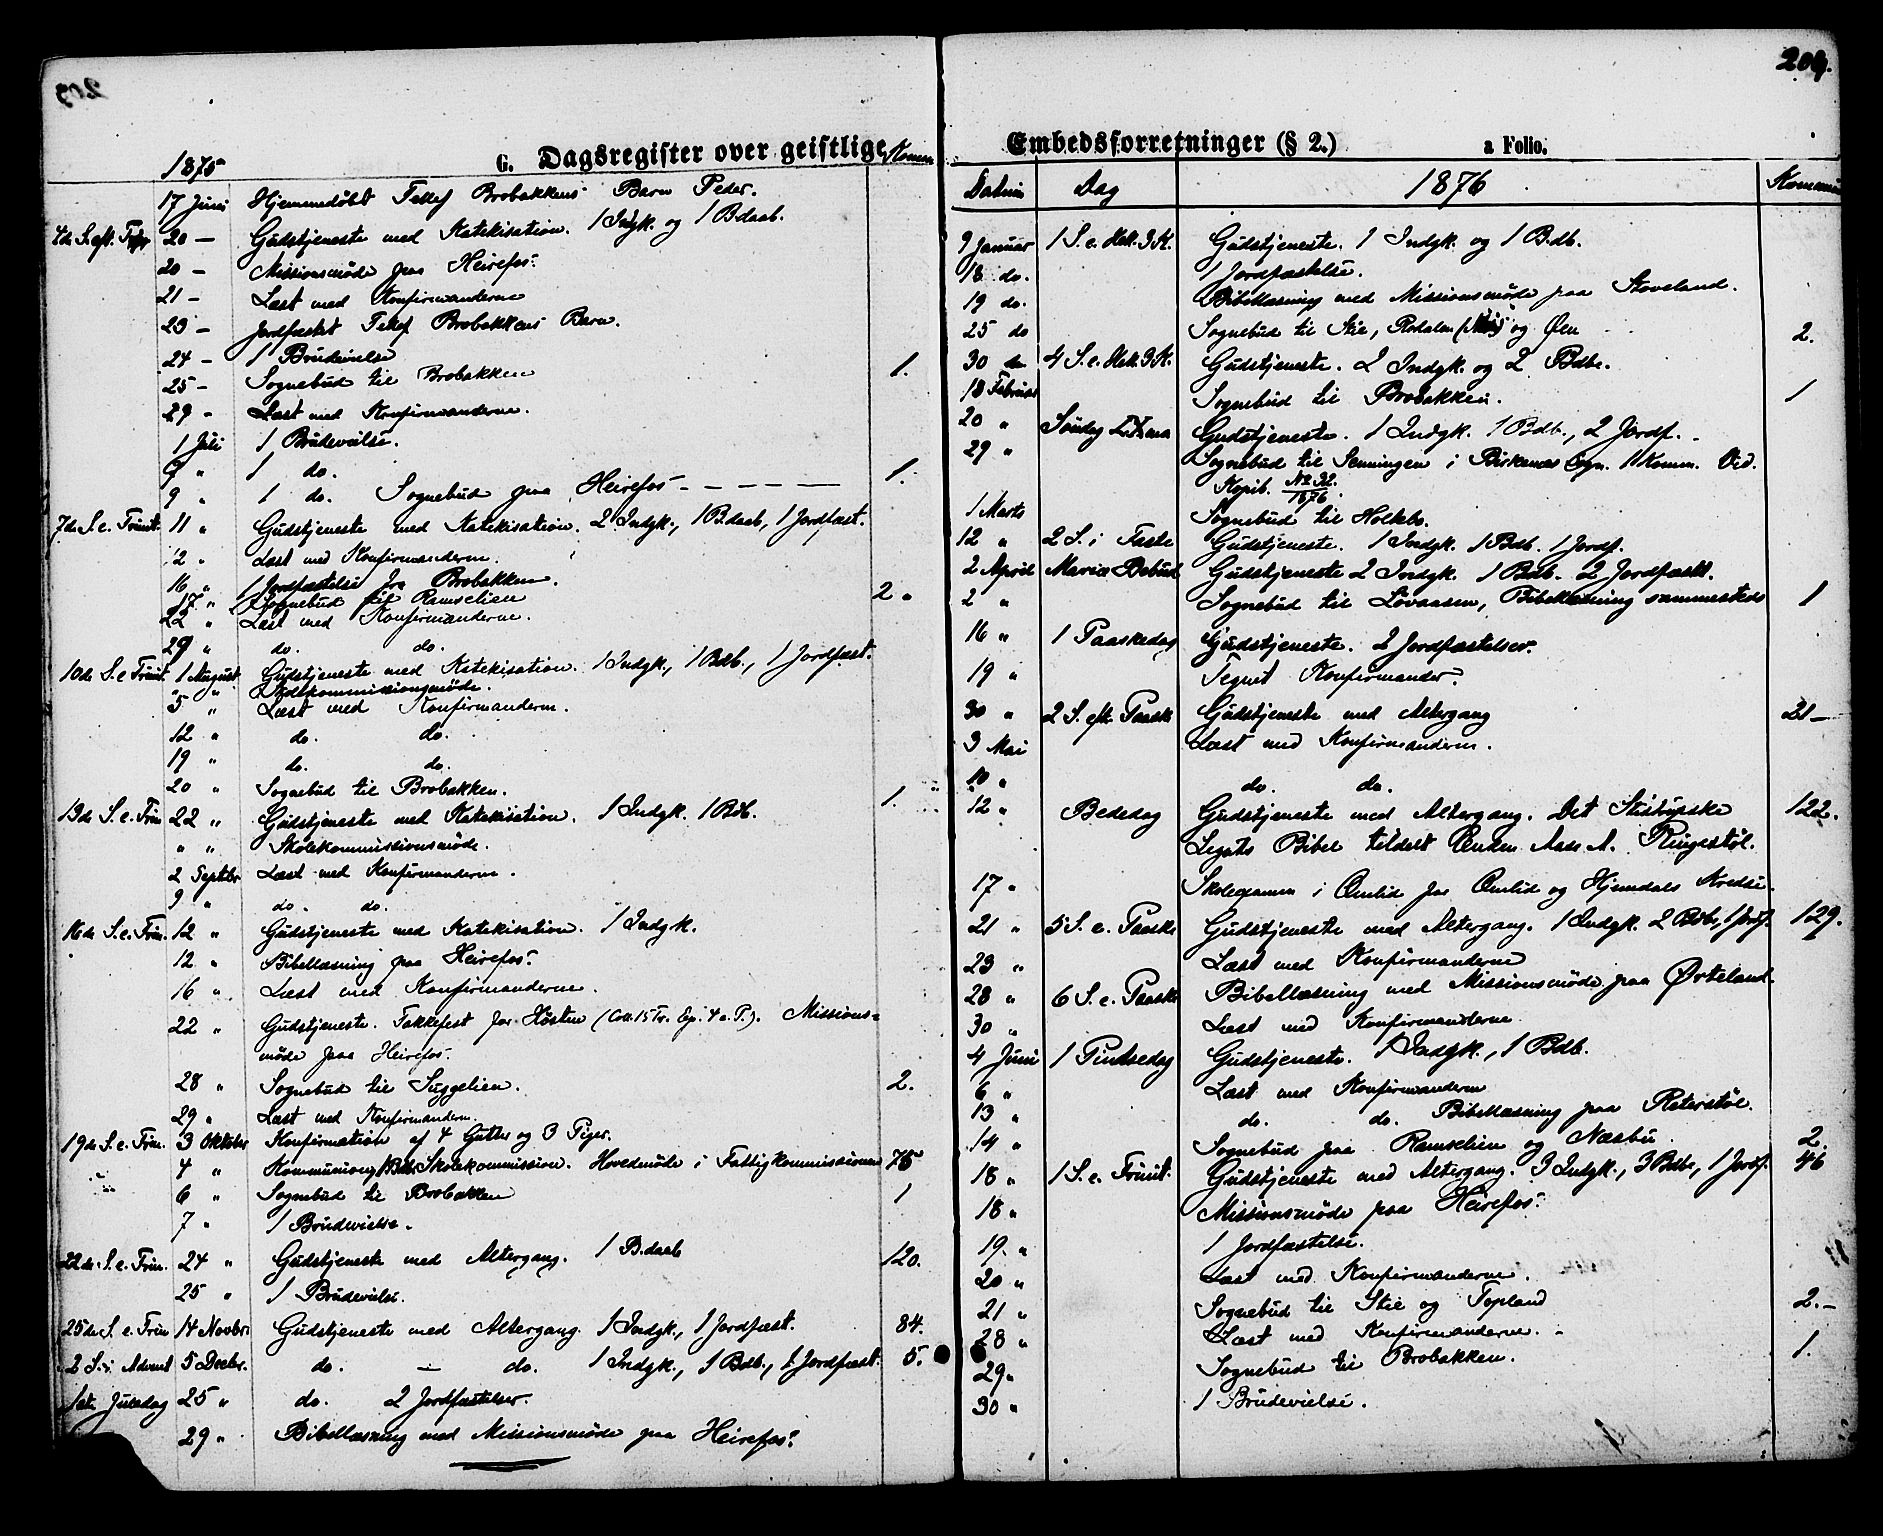 203
1875 G. Dagsregister over geistlige Komm
17 Juni Hjemmedøbt Tellef Brobakkens Barn Peder.
4de S. eft. Tr. 20 — Gudstjeneste med Katekisation. 1 Indgk. og 1 Bdaab.
20 — Missionsmøde paa Heirefos.
21 — Læst med Konfirmanderne
23 — Jordfæstet Tellef Brobakkens Barn.
24 — 1 Brudevielse
25 — Sognebud til Brobakken 1.
29 — Læst med Konfirmanderne.
1 Juli 1 Brudevielse.
7 „ 1 do.
9 „ 1 do. Sognebud paa Heirefos — — — — 1.
7de S. e. Trinit. 11 „ Gudstjeneste med Katekisation. 2 Indgk., 1 Bdaab, 1 Jordfæst.
12 „ Læst med Konfirmanderne.
16 „ 1 Jordfæstelse fra Brobakken.
17 „ Sognebud til Ramselien 2 „
22 „ Læst med Konfirmanderne.
29 „ do. do.
10de S. e Trinit. 1 August Gudstjeneste med Katekisation. 1 Indgk., 1 Bdb., 1 Jordfæst.
„ „ Skolekommissionsmøde.
5 „ Læst med Konfirmanderne.
12 „ do. do.
19 „ do. do.
20 „ Sognebud til Brobakken. 1.
13de S. e. Trin 22 „ Gudstjeneste med Katekisation. 1 Indgk. 1 Bdb.
„ „ Skolekommissionsmøde.
2 Septbr Læst med Konfirmanderne.
9 „ do. do.
16de S. e. Trin. 12 „ Gudstjeneste med Katekisation. 1 Indgk.
12 „ Bibellæsning paa Heirefos.
16 „ Læst med Konfirmanderne.
22 „ Gudstjeneste. Takkefest for Høsten (Coll. 15 Tr. Ep. 4 a. P.). Missions=
møde paa Heirefos.
28 „ Sognebud til Suggelien. 2.
29 „ Læst med Konfirmandern.
19de S. e. Trin. 3 Oktober Konfirmation af 4 Gutter og 3 Piger.
4 „ Kommunion, Skolekommission. Hovedmøde i Fattigkommissionen 75
6 „ Sognebud til Brobakken 1
7 „ 1 Brudevielse.
22de S. e. Trin. 24 „ Gudstjeneste med Altergang. 1 Bdaab 120.
25 „ 1 Brudevielse.
25de S. e. Trin 14 Novbr. Gudstjeneste med Altergang. 1 Indgk., 1 Jordfæst. 84.
2 S. i Advent 5 Decbr. do. — do. 1 Indgk., 1 Bdb., 1 Jordfæst. 5.
1ste Juledag 25 „ do. 2 Jordfæstelser.
29 „ Bibellæsning med Missionsmøde paa Heirefos.
204.
Embedsforretninger (§ 2.) a Folio.
Datum Dag 1876 Kommun
9 Januar 1 S. e. Hel. 3 K. Gudstjeneste. 1 Indgk. og 1 Bdb.
18 do. 1 Jordfæstelse.
19 do. Bibellæsning med Missionsmøde paa Stoveland.
25 do Sognebud til Stie, og Øen 2.
30 do 4 S. e. Hel. 3 K. Gudstjeneste. 2 Indgk. og 2 Bdbe.
18 Februar Sognebud til Brobakken. 1
20 „ Søndag Gudstjeneste. 1 Indgk. 1 Bdb., 2 Jordf.
29 „ Sognebud til Senningen i Birkenæs Sogn. 1 Komm. Vid.
Kopib. No 32. 1876.
1 Marts Sognebud til Holtebo.
12 „ 2 S. i Faste Gudstjeneste. 1 Indgk. 1 Bdb. 1 Jordf.
2 April Mariæ Bebud Gudstjeneste 2 Indgk. 1 Bdb. 2 Jordfæst.
2 „ Sognebud til Løvaasen, Bibellæsning sammesteds 1
16 „ 1 Paaskedag Gudstjeneste. 2 Jordfæstelser.
19 „ Tegnet Konfirmander.
30 „ 2 S. eft. Paaske Gudstjeneste med Altergang 21 —
3 Mai Læst med Konfirmandern.
10 „ do. do.
12 „ Bededag Gudstjeneste med Altergang. Det Stistrupske 122.
Legats Bibel tildelt Aase A. Ringestøl.
17 „ Skoleexamen i Omlid for Omlid og Hjemdals Kredse.
21 „ 5 S. e. Paaske Gudstjeneste med Altergang. 1 Indgk. 2 Bdbe, 1 Jordf. 129.
23 „ Læst med Konfirmanderne
28 „ 6 S. e. Paaske Bibellæsning med Missionsmøde paa Ørteland.
30 „ Læst med Konfirmanderne
4 Juni 1 Pintsedag Gudstjeneste. 1 Indgk., 1 Bdb.
6 „ Læst med Konfirmanderne
13 „ do. do. Bibellæsning paa Reterstøl.
14 „ Sognebud paa Ramselien og Næsbu. 2.
18 „ 1 S. e. Trinit. Gudstjeneste med Altergang. 3 Indgk., 3 Bdbe, 1 Jordf. 46
18 „ Missionsmøde paa Heirefos.
19. „ 1 Jordfæstelse.
20 „ Læst med Konfirmanderne.
21 „ Sognebud til Stie og Topland 2. —
28 „ Læst med Konfirmanderne.
29 „ Sognebud til Brobakken. 1.
30 „ 1 Brudevielse.